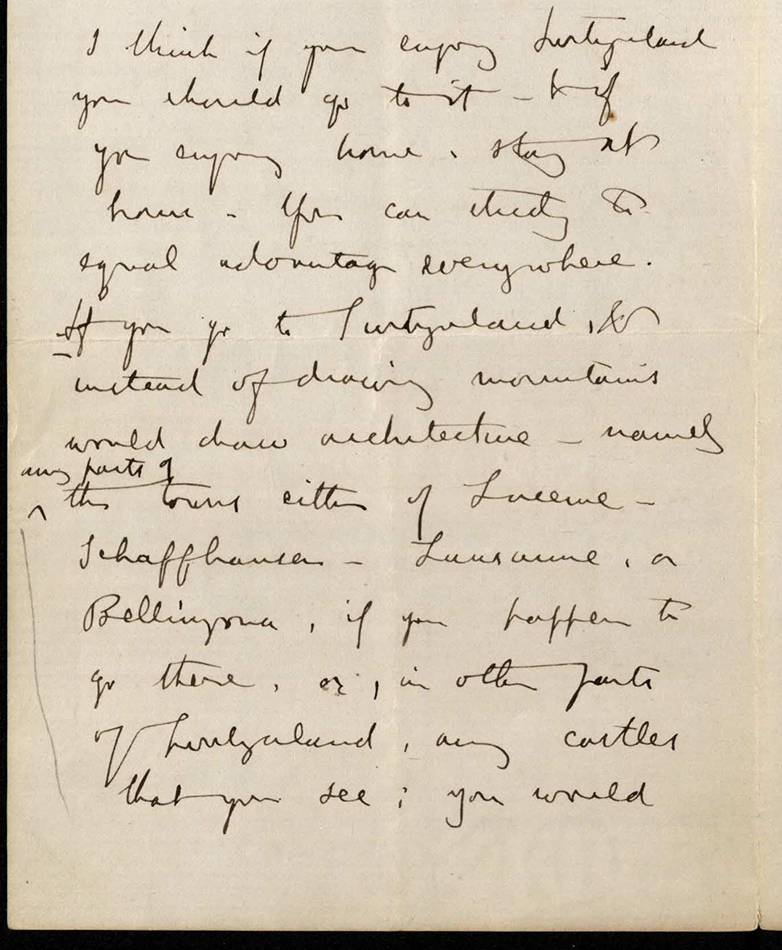 I think if you enjoy Switzerland
you should go to it - & if
you enjoy home, stay at
home - You can study to
equal advantage everywhere.
If you go to Switzerland, &
instead of drawing mountains
would draw architecture - namely
any parts of
the towns either of Lucerne -
Schaffhausen - Lausanne, or
Bellinzona, if you happen to
go there, or, in other parts
of Switzerland, any castles
that you see; you would